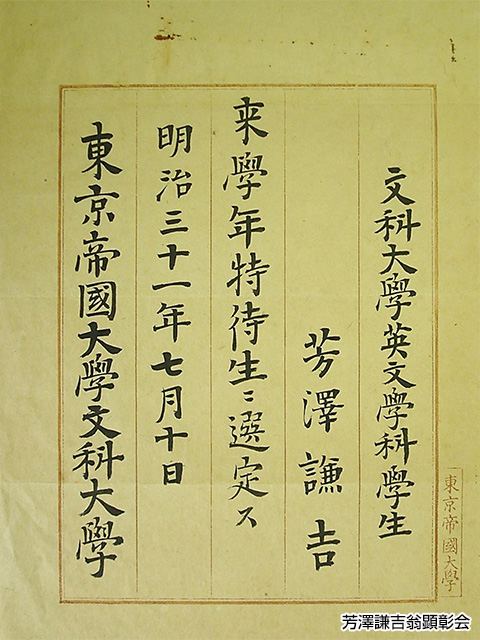 文科大學英文學科學生
芳澤謙吉
来學年特待生ニ選定ス
明治三十一年七月十日
東京帝國大學文科大學
東京帝國大學
芳澤謙吉翁顕彰会